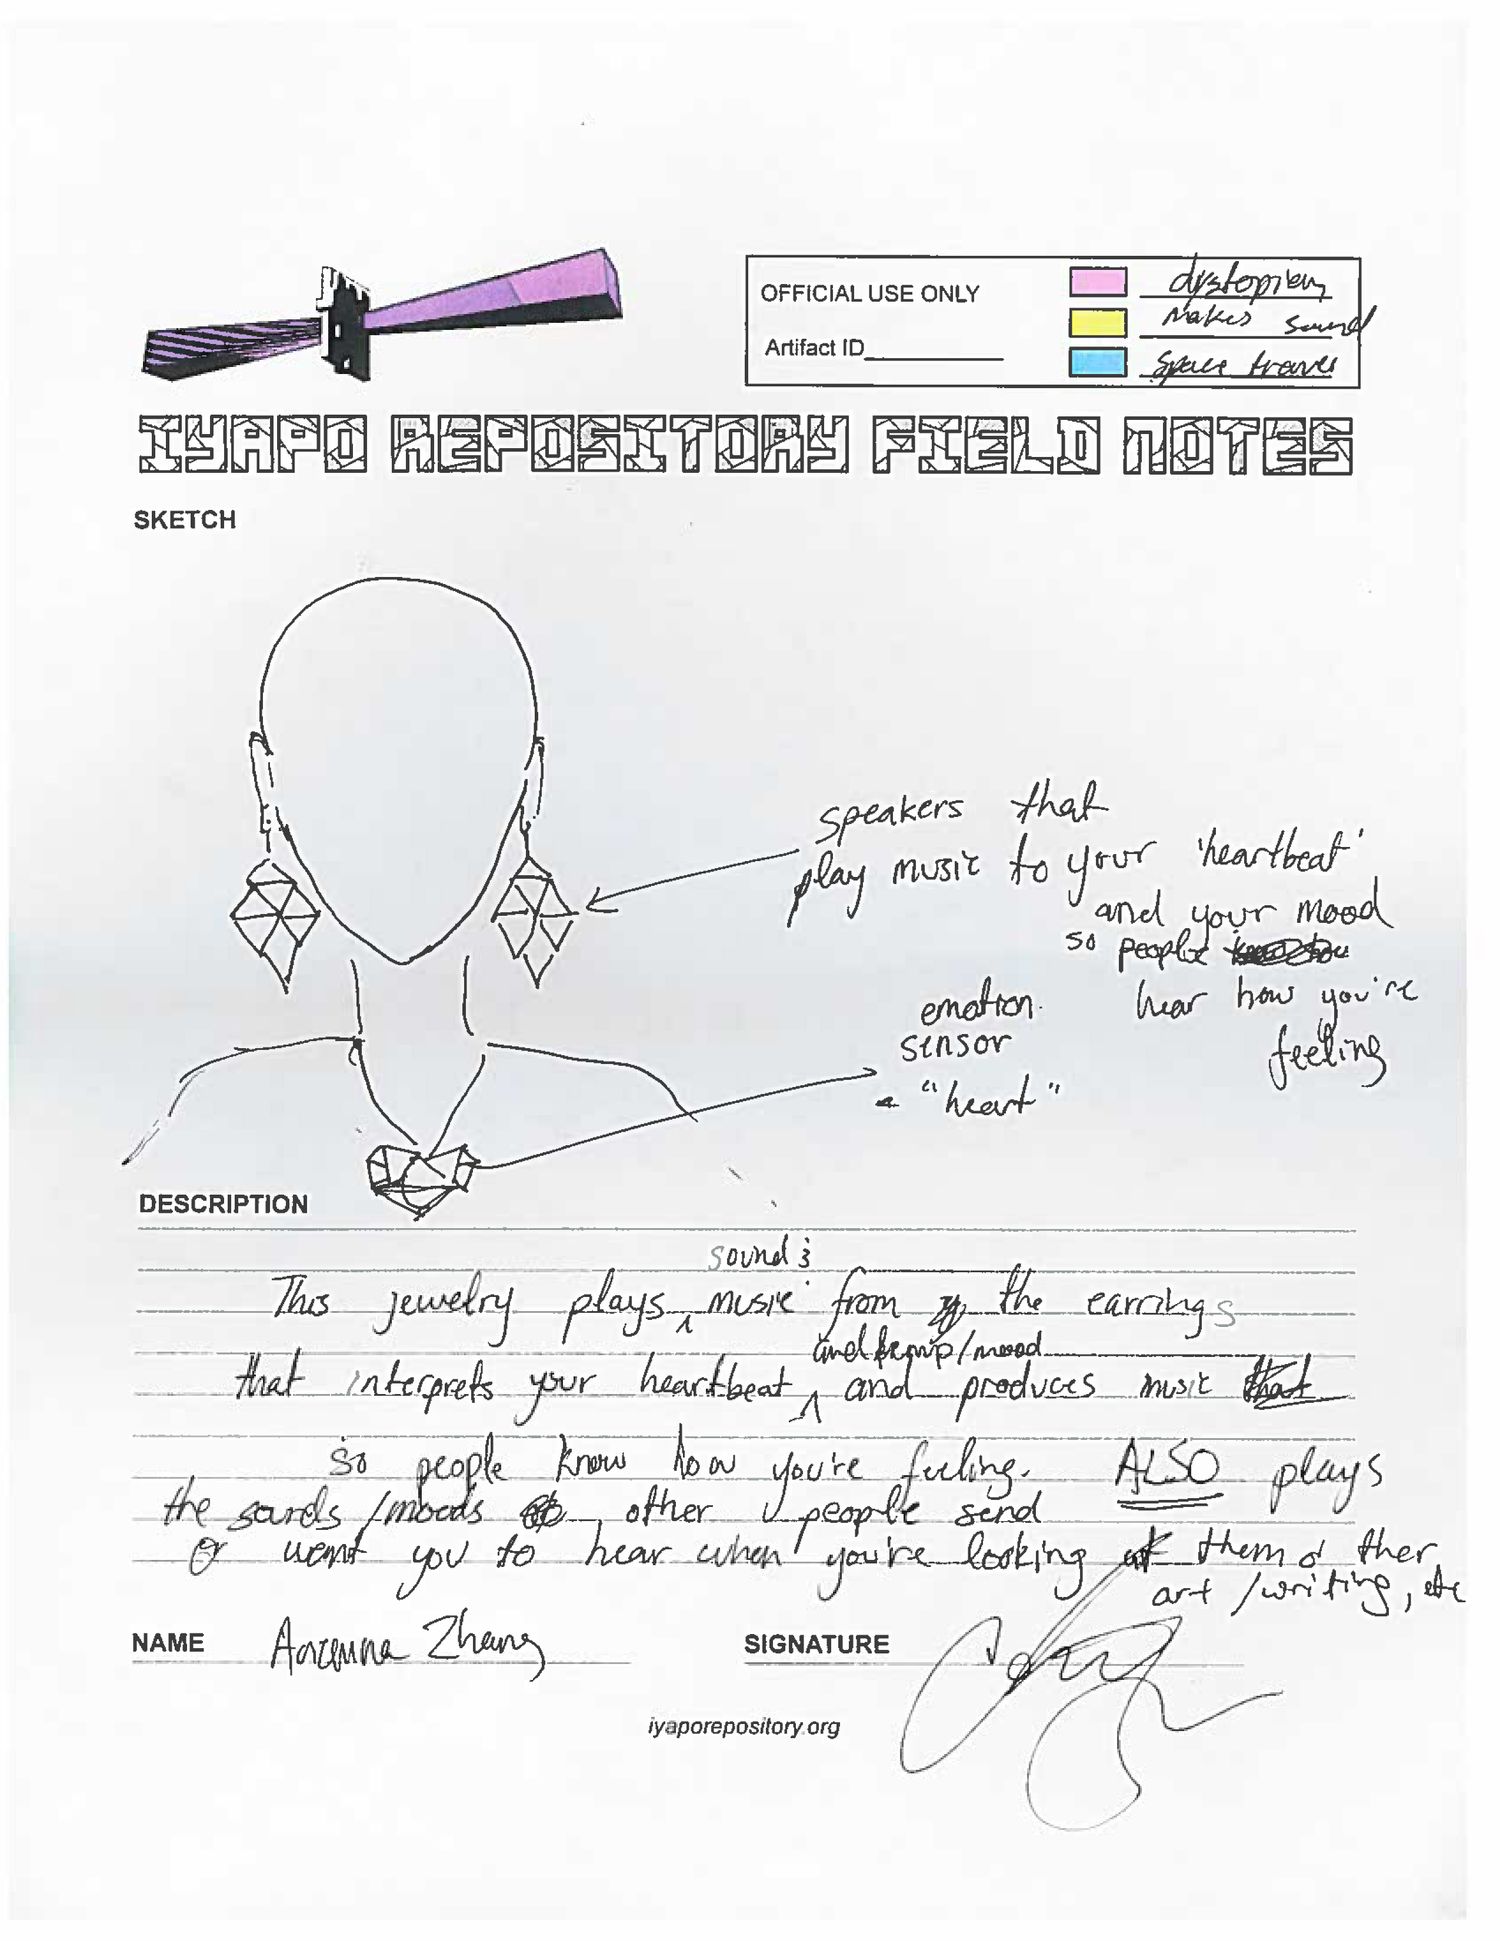 OFFICIAL USE ONLY
Artifact ID
dystopian
Makes sound
Space travel
IYAPO REPOSITORY FIELD NOTES
SKETCH
speakers that
play music to your 'heartbeat'
and your mood
so people
hear how you're
feeling
emotion
sensor
"heart"
DESCRIPTION
sound &
This jewelry plays music from the earrings
and /mood
that interprets your heartbeat and produces music that
so people know how you're feeling. ALSO plays
the sounds/moods other people send
or want you to hear when you're looking at them other
art/writing, etc
NAME Zhang
SIGNATURE
iyaporepository.org